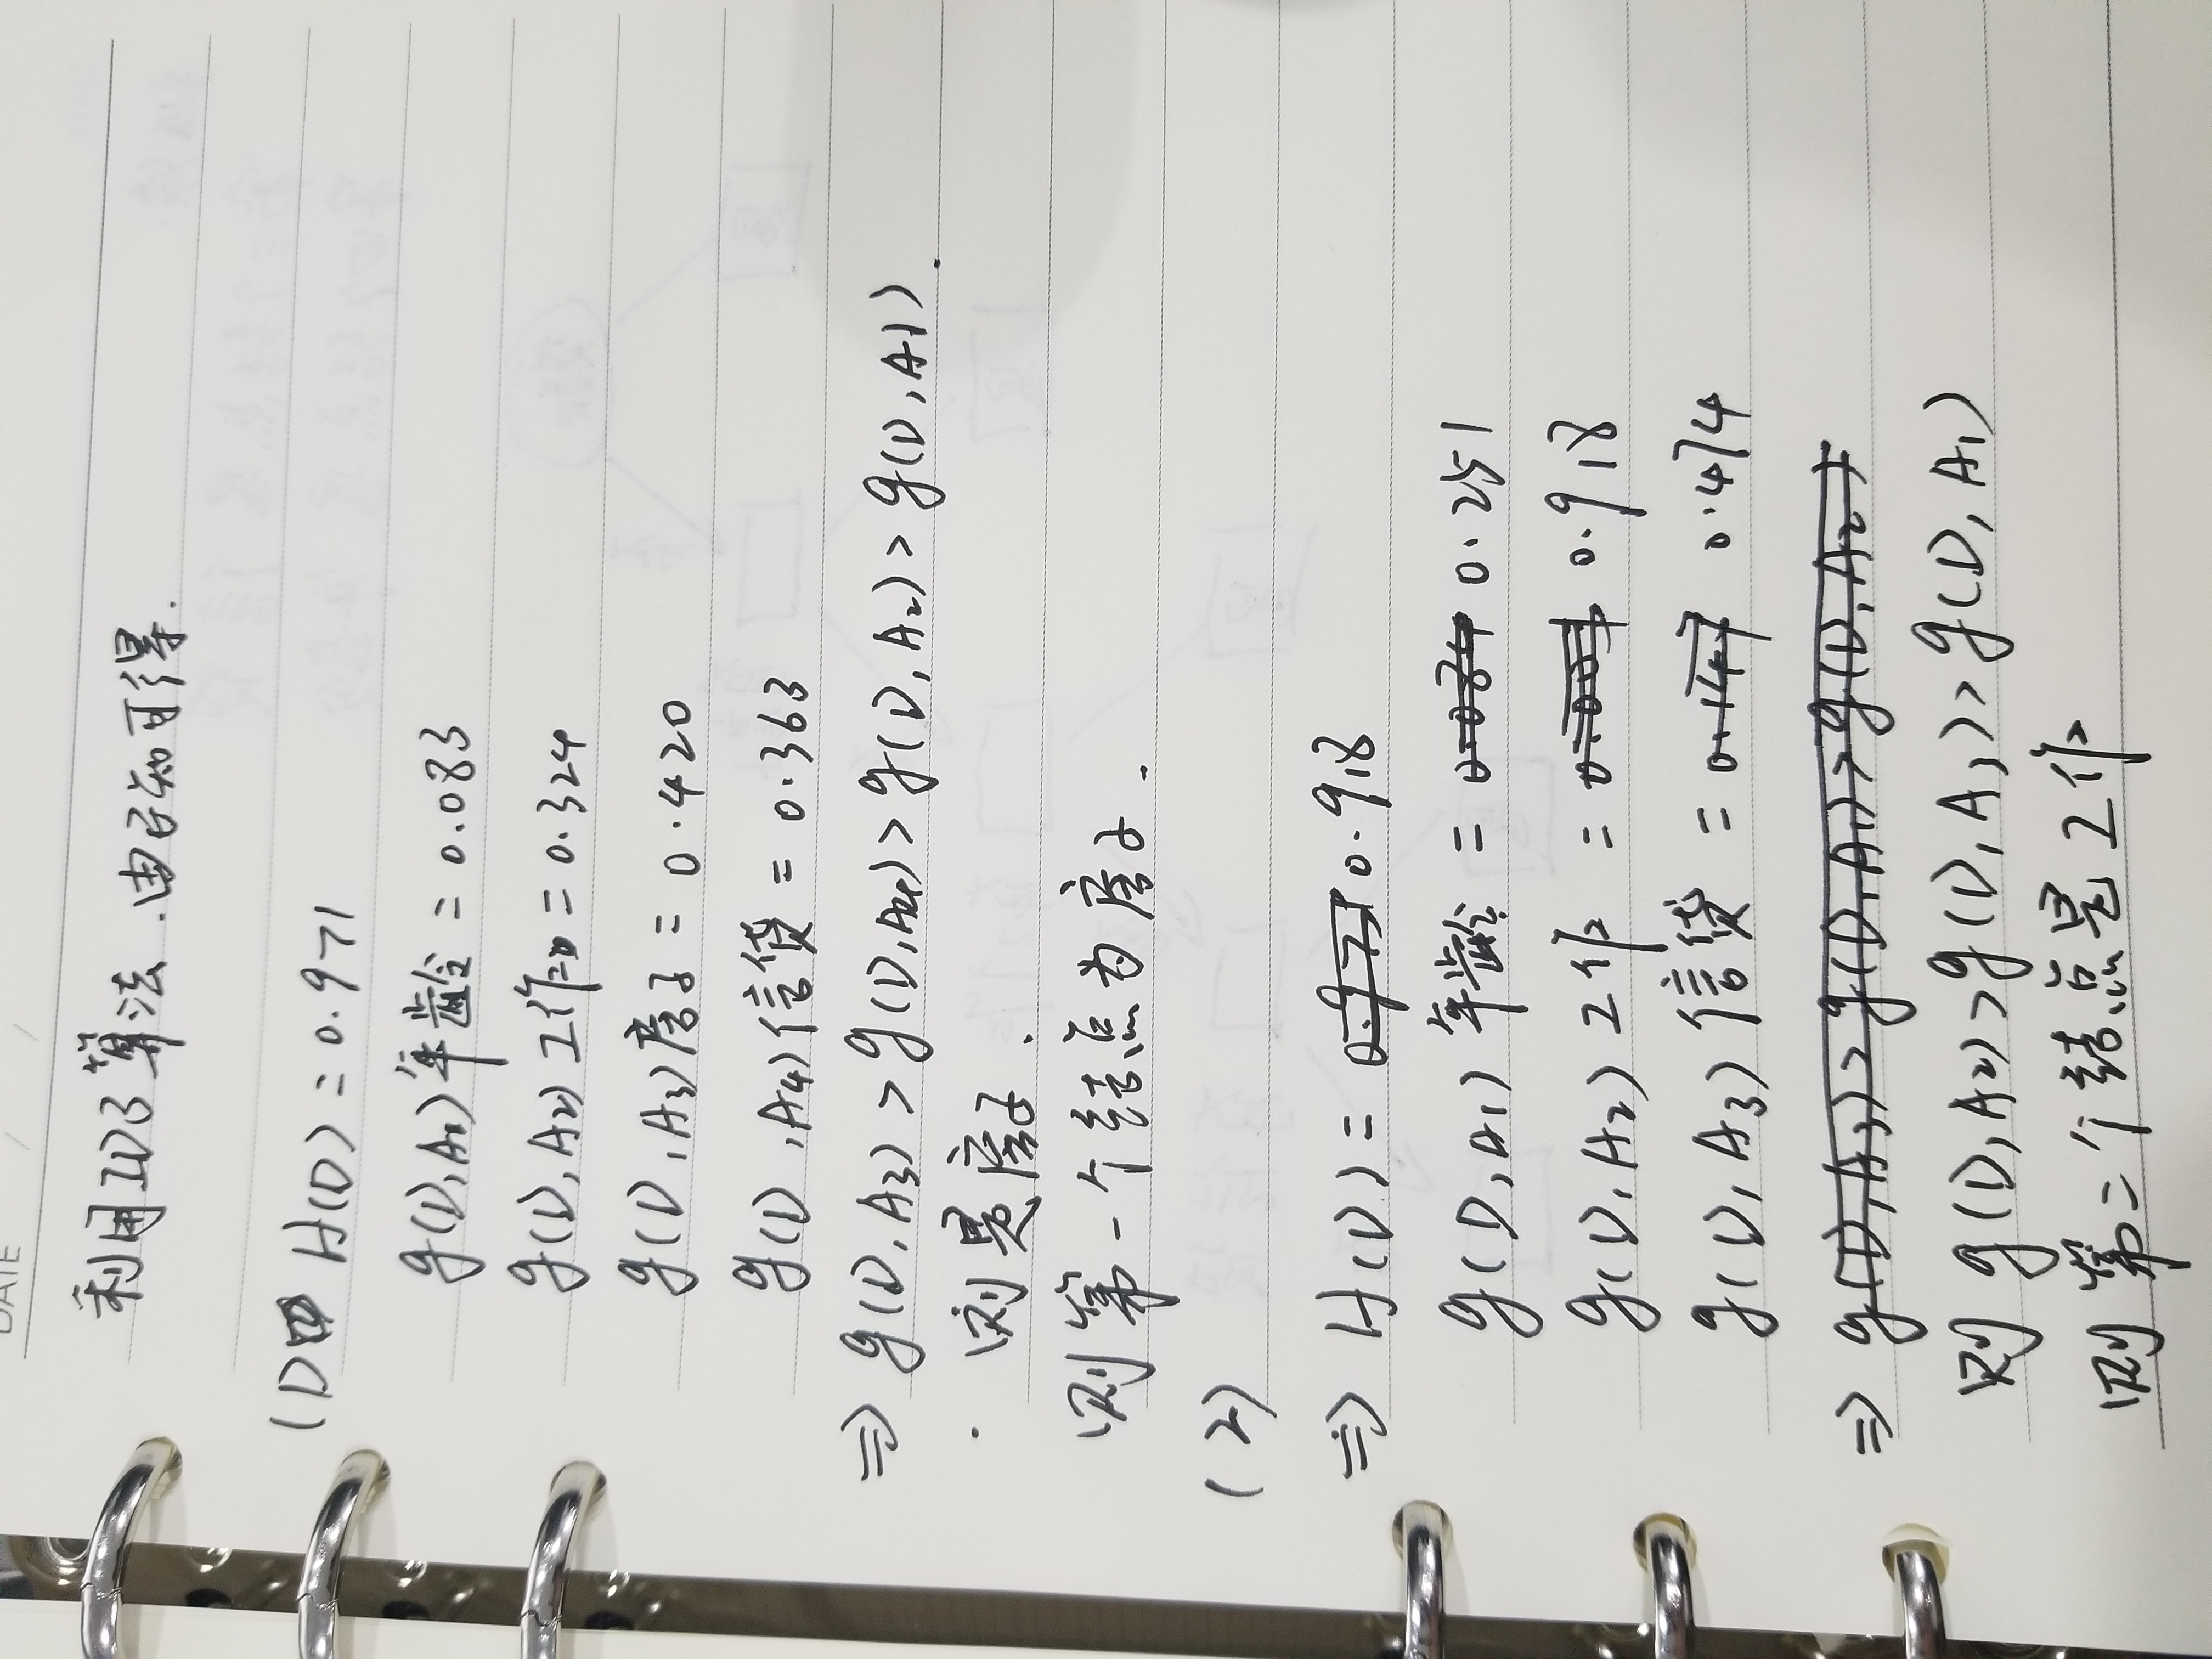 DATE / /
利用ID3算法.由已知可得.
(1) H(D) = 0.971
g(D,A1)年龄 = 0.083
g(D,A2)工作 = 0.324
g(D,A3)房子 = 0.420
g(D,A4)信贷 = 0.363
⇒ g(D,A3) > g(D,A4) > g(D,A2) > g(D,A1).
则是房子.
则第一个结点为房子.
(2)
⇒ H(D) = 0.971 0.918
g(D,A1) 年龄 = 0.084 0.251
g(D,A2) 工作 = 0.918
g(D,A3) 信贷 = 0.147 0.474
⇒ g(D,A3) > g(D,A1) > g(D,A2)
则 g(D,A2) > g(D,A3) > g(D,A1)
则第二个结点是工作